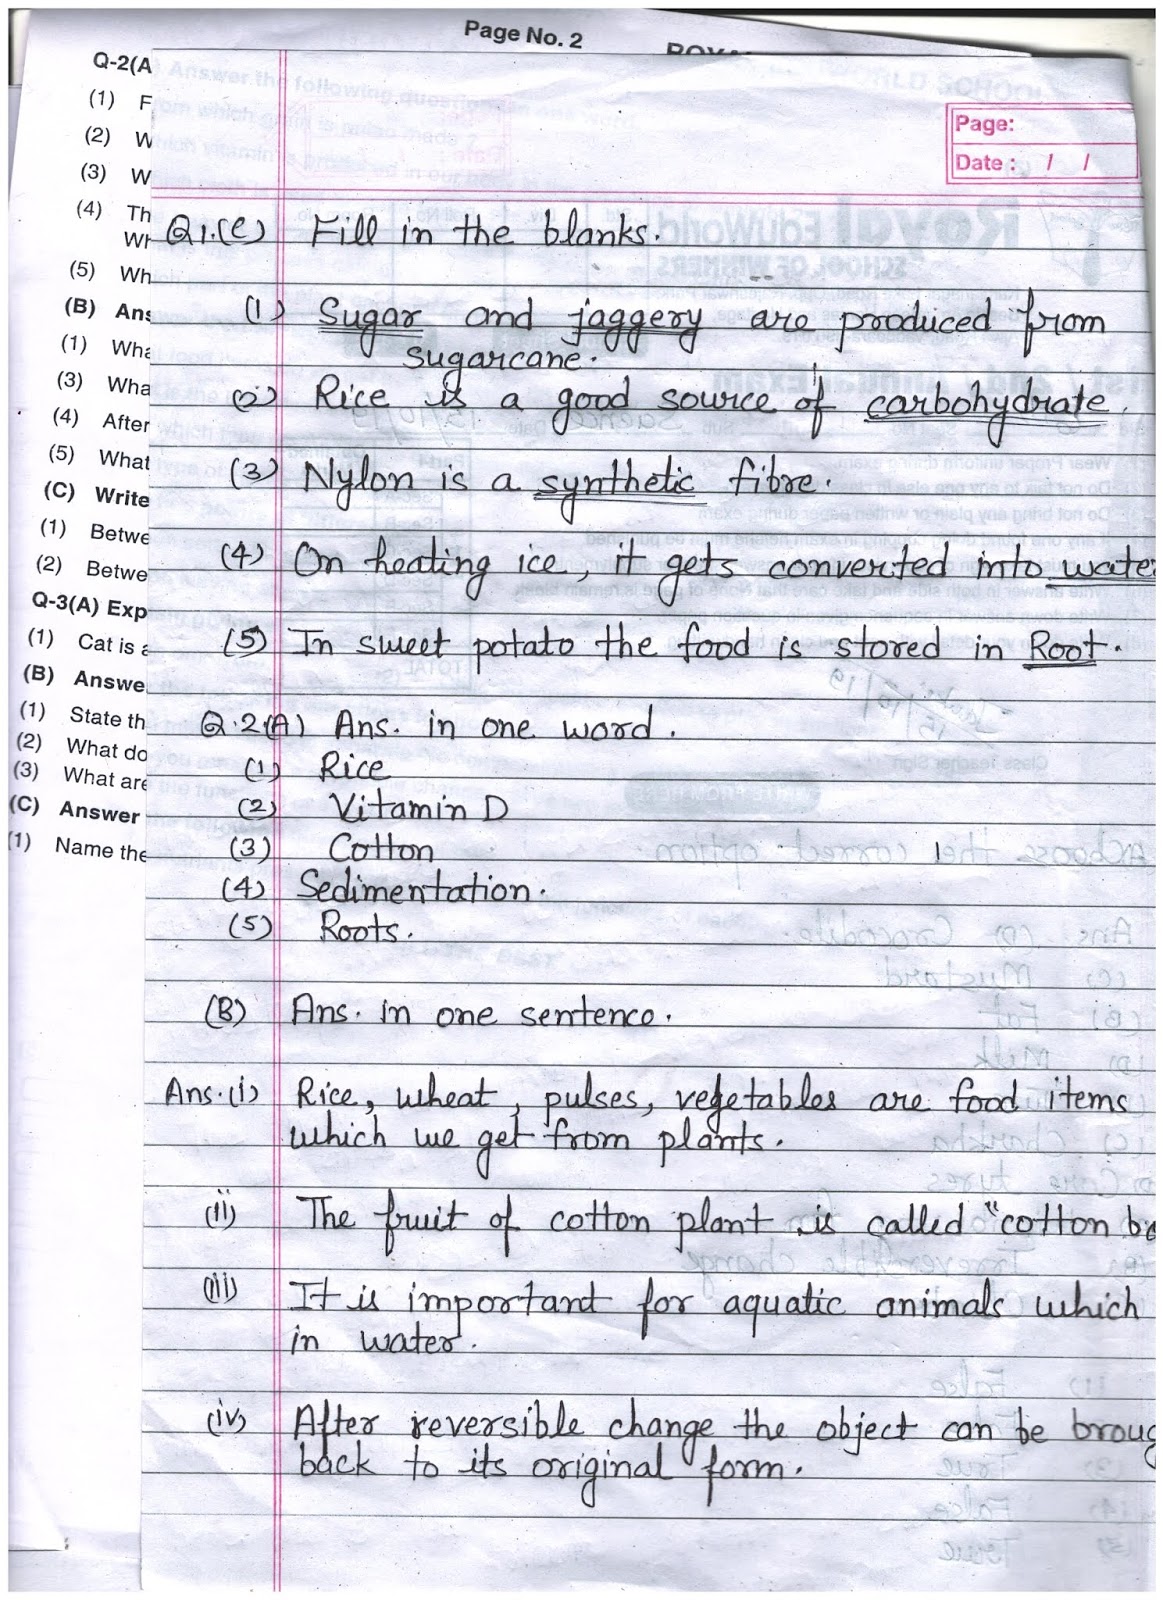 Page No. 2
Q-2(A
(1) F
(2) W
(3) W
(4) Th
Wh
(5) Wh
(B) Ans
(1) Wha
(3) Wha
(4) After
(5) What
(C) Write
(1) Betwe
(2) Betwe
Q-3(A) Exp
(1) Cat is a
(B) Answe
(1) State th
(2) What do
(3) What are
(C) Answer
(1) Name the
Page:
Date : / /
Q1.(e) Fill in the blanks.
(1) Sugar and jaggery are produced from
sugarcane.
(2) Rice is a good source of carbohydrate.
(3) Nylon is a synthetic fibre.
(4) On heating ice, it gets converted into wate
(5) In sweet potato the food is stored in Root.
Q.2(A) Ans. in one word.
(1) Rice
(2) Vitamin D
(3) Cotton
(4) Sedimentation.
(5) Roots.
(B) Ans. in one sentence.
Ans.(i) Rice, wheat, pulses, vegetables are food items
which we get from plants.
(ii) The fruit of cotton plant is called "cotton bo
(iii) It is important for aquatic animals which
in water.
(iv) After reversible change the object can be broug
back to its original form.